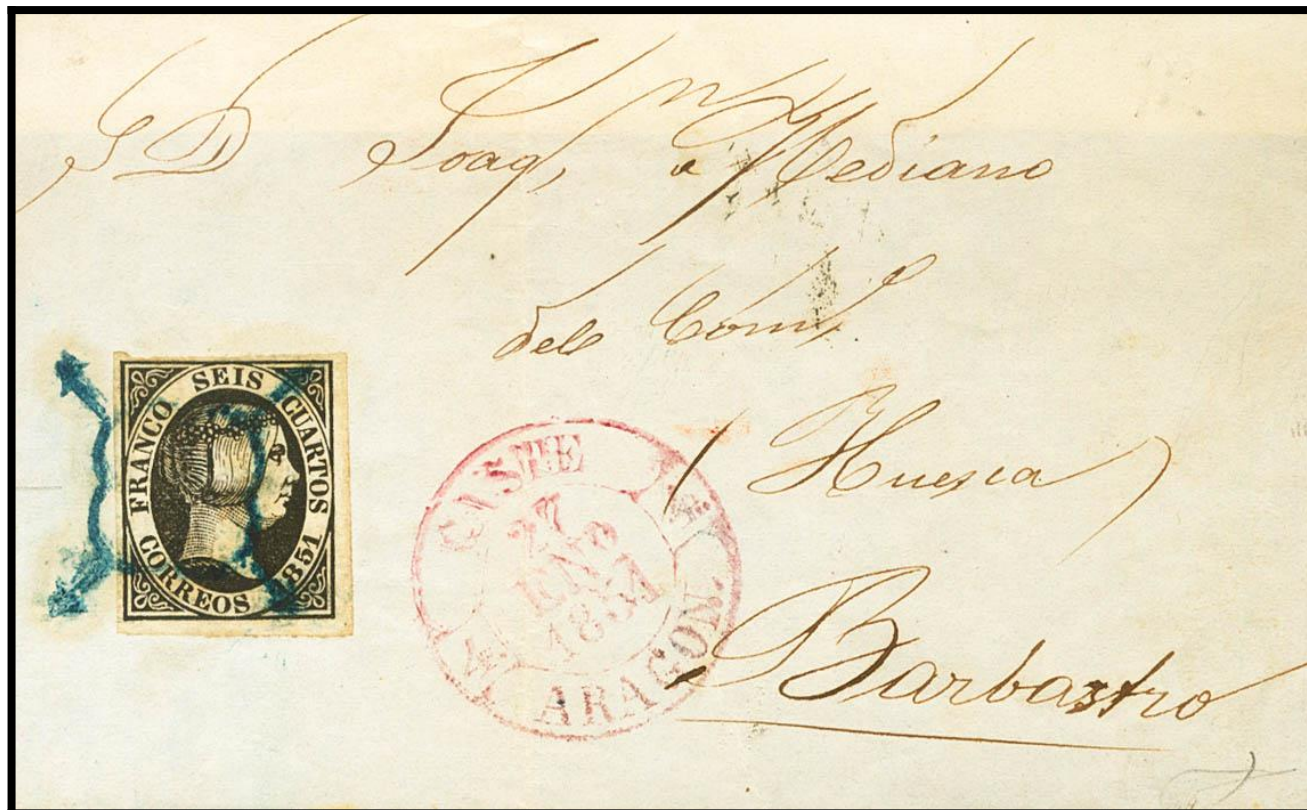 S D Joaqn Mediano
del Como
(Huesca)
Barbastro
FRANCO SEIS CUARTOS
CORREOS 1851
CASPE
27
ENo
1851
ARAGON.